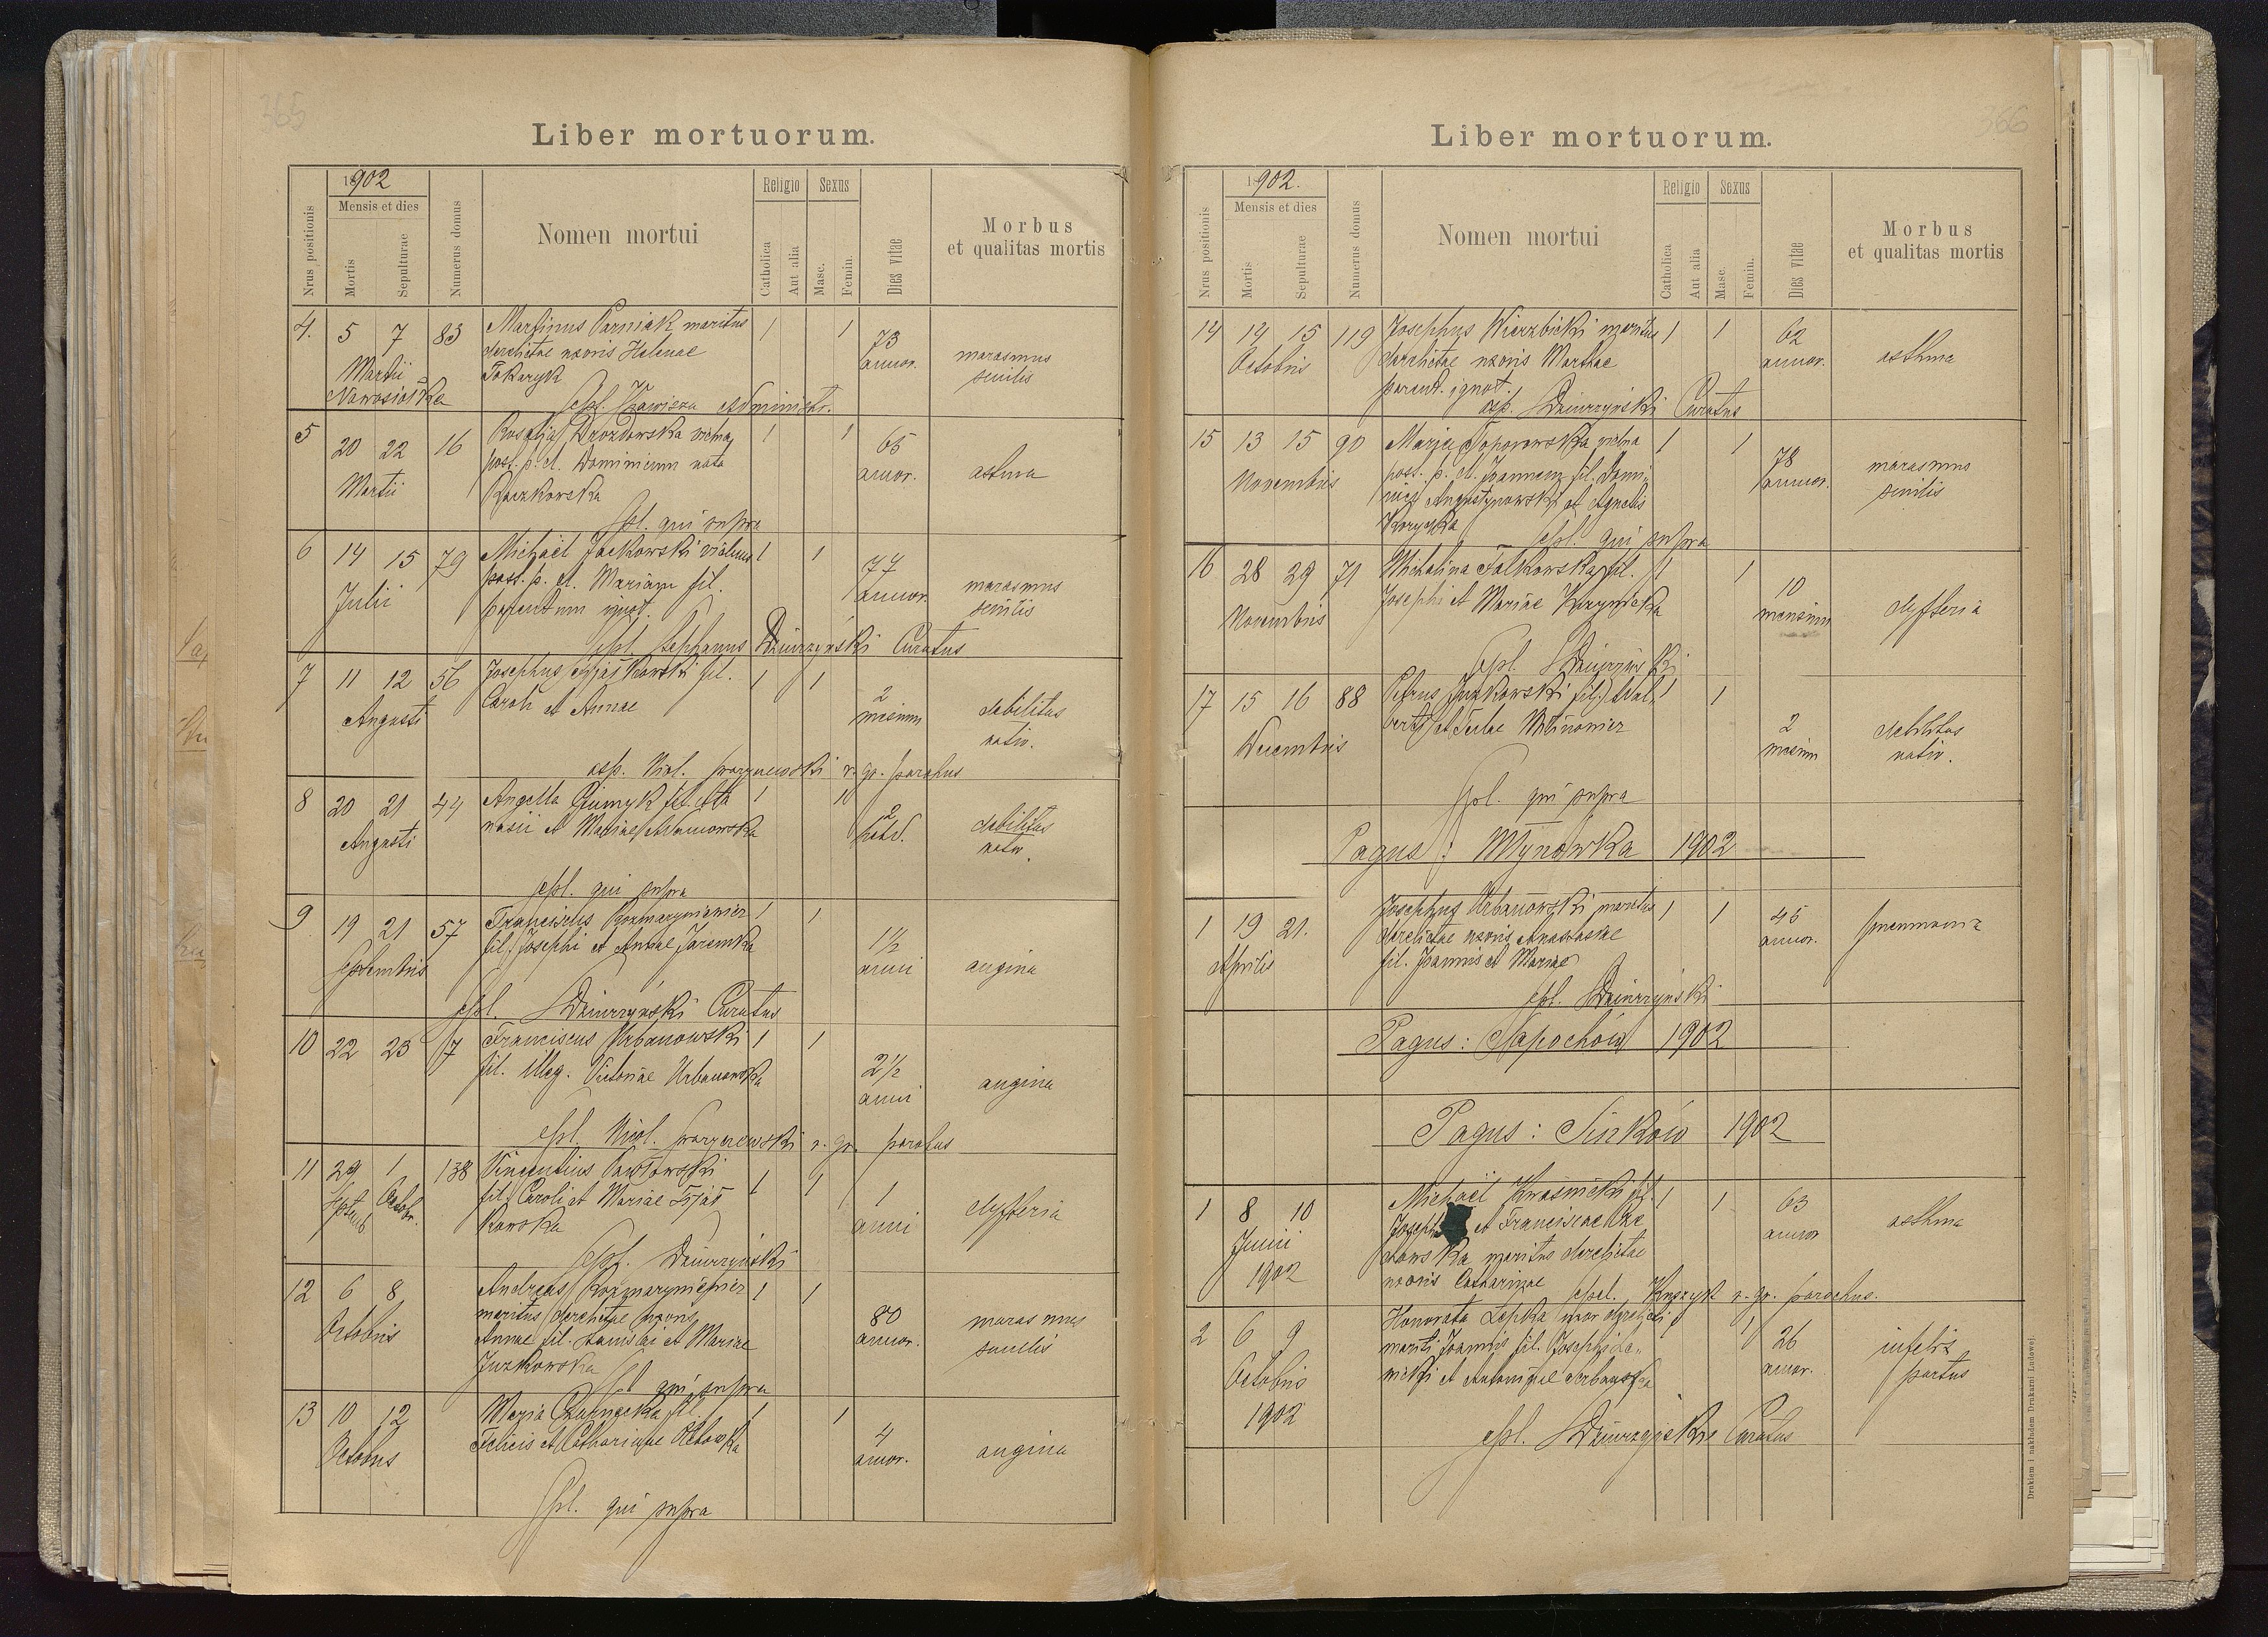 365
Liber mortuorum.
Nrus positionis
1902
Mensis et dies
Mortis
Sepulturae
Numerus domus
Nomen mortui
Religio
Catholica
Aut alia
Sexus
Masc.
Femin.
Dies vitae
Morbus
et qualitas mortis
4. 5 7 83 Martinus Parniak maritus 1 1 73
Martii derelictae uxoris Helenae annor. marasmus
Nowosiółka Tokaryk senilis
sepl. Zawisza Administr.
5 20 22 16 Rosalja Drozdowska vidua 1 1 65
Martii post. p. d. Dominicum nata annor. astma
Raczkowska
spl. qui supra
6 14 15 79 Michaël Jackowski viduus 1 1 77
Julii post. p. d. Mariam fil. annor. marasmus
parentum ignot. senilis
spl. Stephanus Dziurzyński Curatus
7 11 12 56 Josephus fil. 1 1 2
Augusti Caroli et Annae mensium debilitas
nativ.
asp. Nicol. r. gr. parochus
8 20 21 44 Angella fil. Ata 1 1 2
Augusti nasii et Mariae Adamowska debilitas
nativ.
spl. qui supra
9 19 21 57 Franciscus Rozmaryniewicz 1 1 1½
Septembris fil. Josephi et Annae Jaremka anni angina
spl. SDziurzyński Curatus
10 22 23 7 Franciscus Urbanowski 1 1 2½
fil. illeg. Victoriae Urbanowska anni angina
spl. Nicol. r. gr. parochus
11 29 1 138 Vincentius Pawłowski 1 1 1
Septemb. Octobr. fil. Caroli et Mariae anni dyfteria
kowska
spl. Dziurzyński
12 6 8 Andreas Rozmaryniewicz 1 1 80
Octobris maritus derelictae uxoris annor. marasmus
Annae fil. et Mariae senilis
Juzkowska
spl qui supra
13 10 12 Maria Czarnecka fil. 1 1 4
Octobris Felicis et Catharinae annor. angina
spl. qui supra
366
Liber mortuorum.
Nrus positionis
1902.
Mensis et dies
Mortis
Sepulturae
Numerus domus
Nomen mortui
Religio
Catholica
Aut alia
Sexus
Masc.
Femin.
Dies vitae
Morbus
et qualitas mortis
14 14 15 119 Josephus Wierzbicki maritus 1 1 62
Octobris derelictae uxoris Marthae annor. asthma
parent. ignot.
asp. SDziurzyński Curatus
15 13 15 90 Marja Toporowska vidua 1 1 78
Novembris post. p. d. Joannem fil. Domi- annor. marasmus
nici Augustynowski et Agnetis senilis
spl. qui supra
16 28 29 71 Michalina Falkowska fil. 1 1 10
Novembris Josephi et Mariae mensium dyfteria
spl. SDziurzyński
17 15 16 88 Petrus Juzkowski fil. Adal- 1 1 2
Decembris berti et Teclae mensium debilitas
nativ.
spl. qui supra
Pagus: Młynówka 1902
1 19 21. Josephus Urbanowski maritus 1 1 45
Aprilis derelictae uxoris Anastasiae annor. pneumonia
fil. Joannis et Mariae
spl. SDziurzyński
Pagus: Sapochów 1902
Pagus: Sinków 1902
1 8 10 Michaël Kwaśnicki fil. 1 1 63
Junii Josephi et Franciscae annor asthma
1902 dowska maritus derelictae
uxoris Catharinae spl. r. gr. parochus.
2 6 9 Honorata Lepka uxor derelicti 1 1 26
Octobris mariti Joannis fil. Josephi annor. infelix
1902 nicki et Antoninae Urbańska partus
spl. SDziurzyński Curatus
Drukiem i nakładem Drukarni Ludowej.